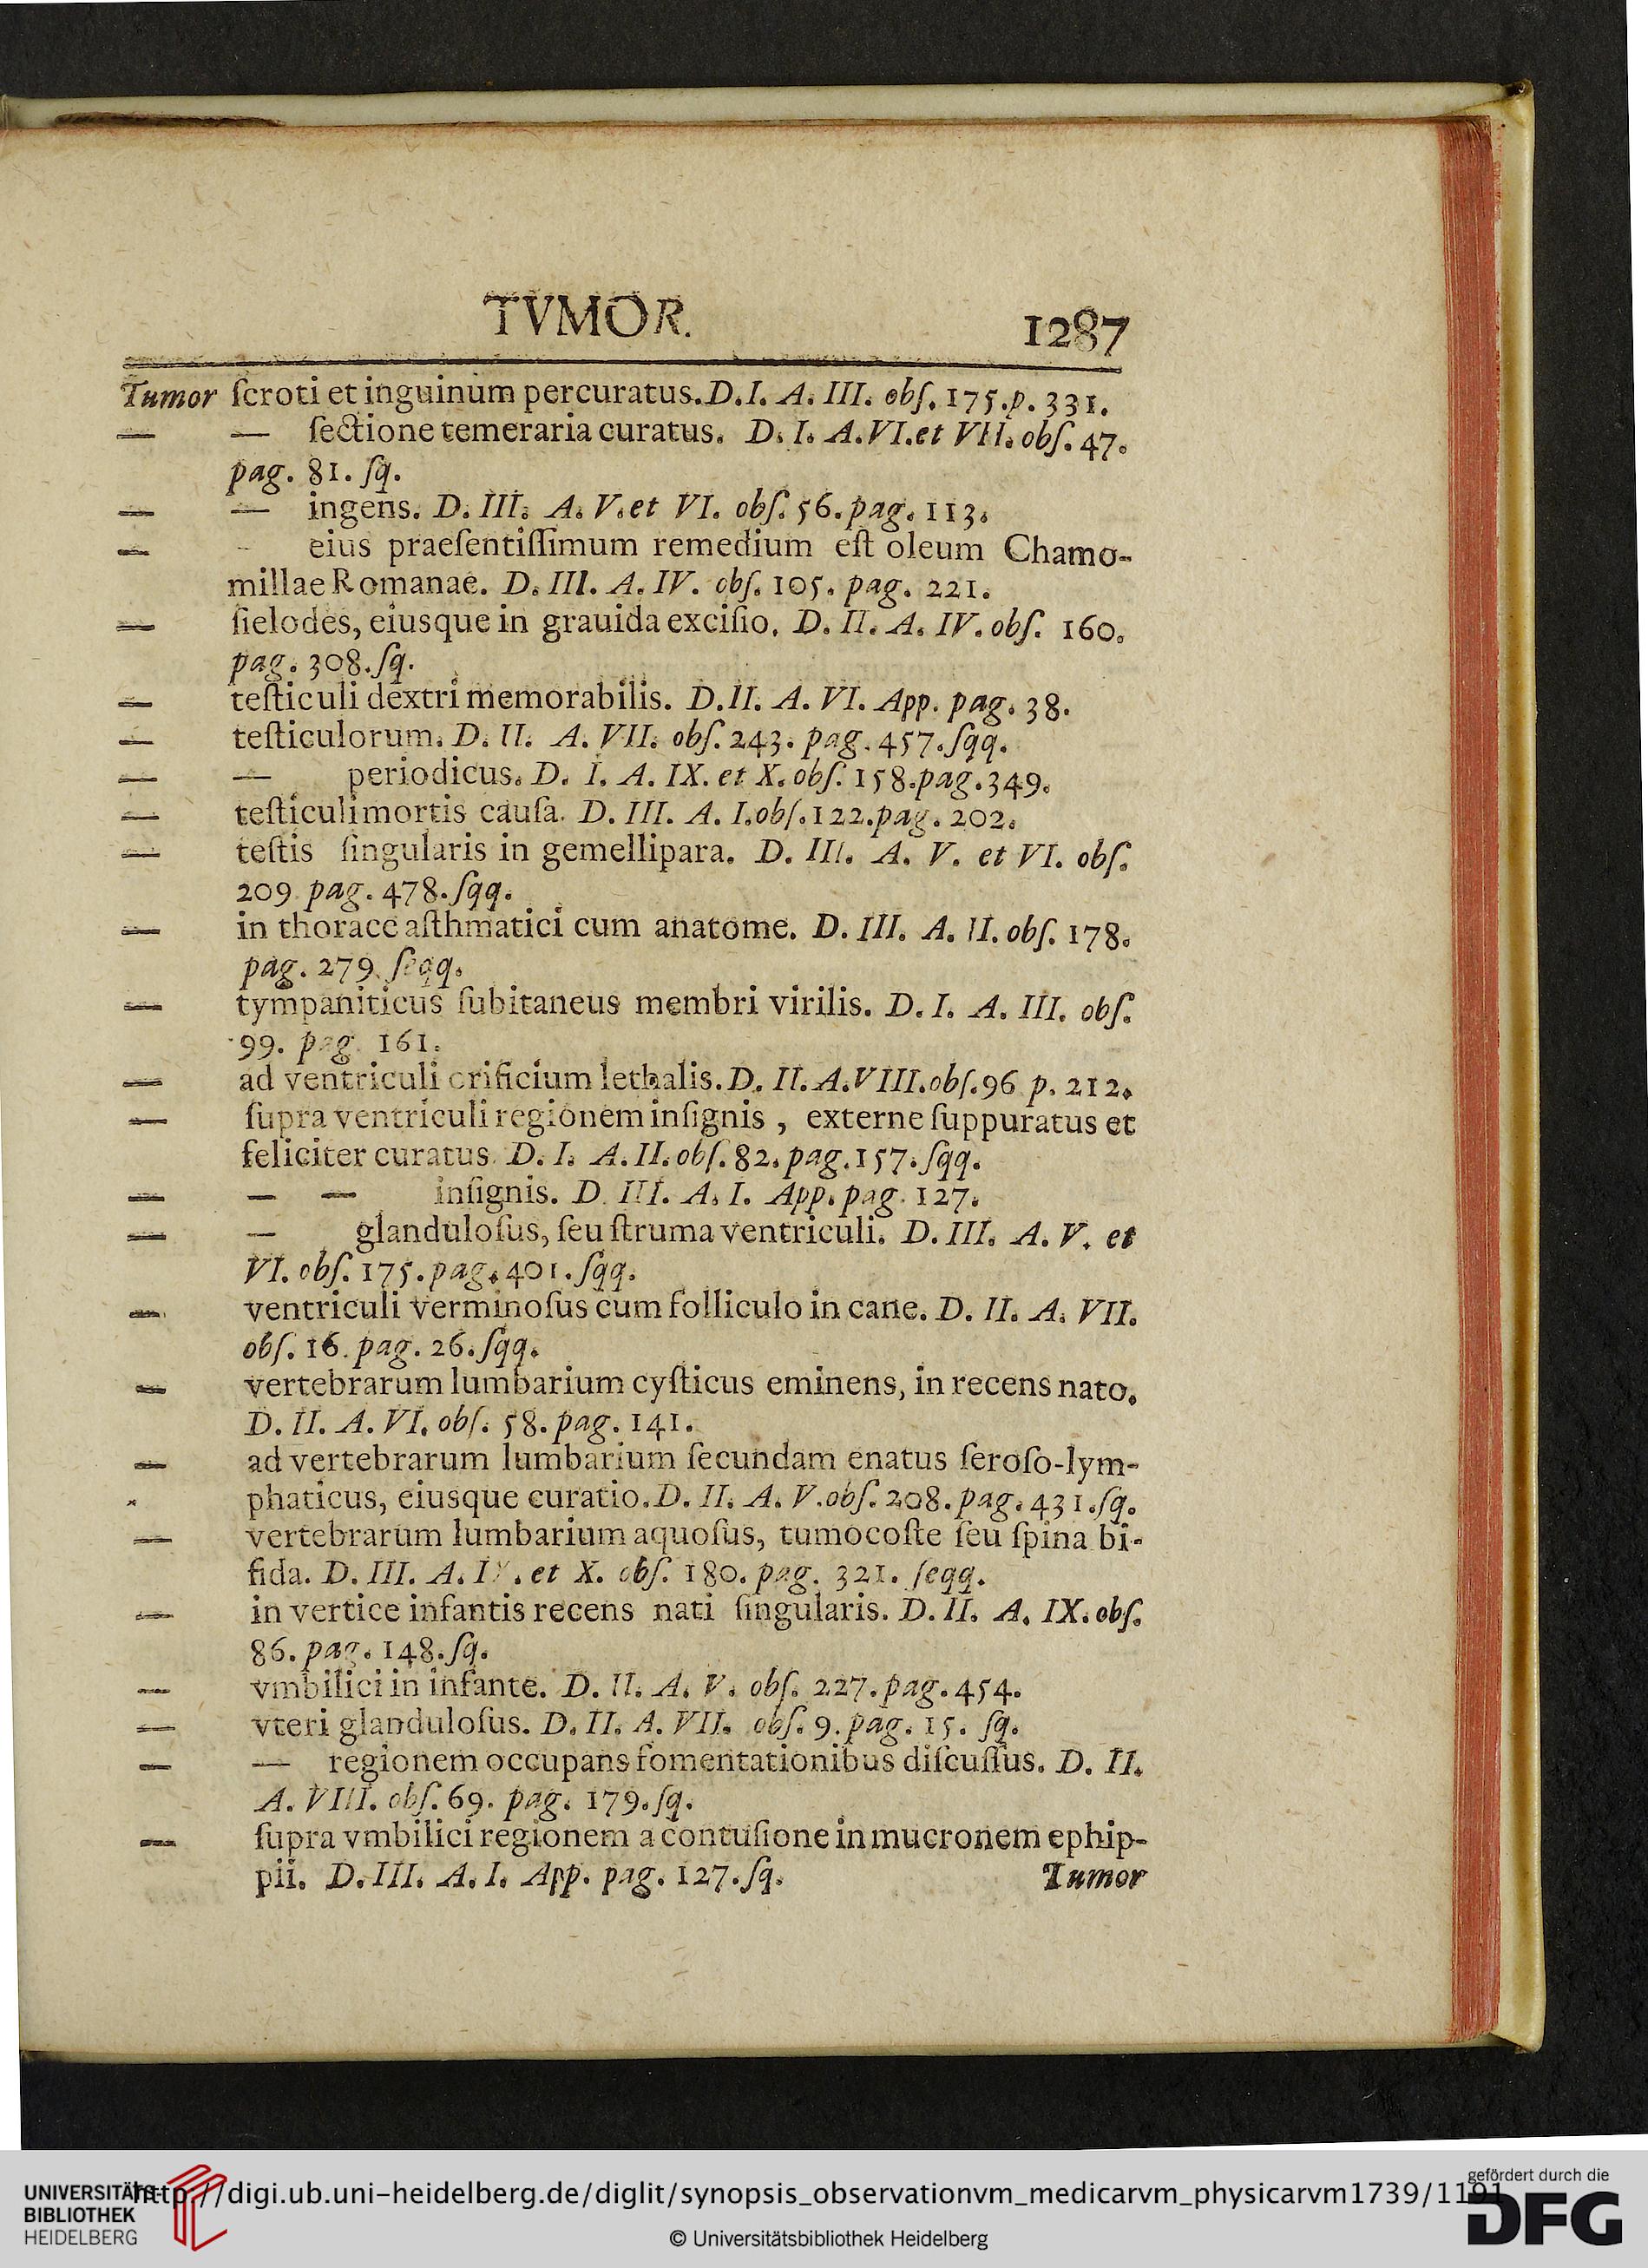 TVMOR. 1287
Tumor ſcroti et inguinum percuratus. D. I. A. III. obſ. 175. p. 331.
— — ſectione temeraria curatus. D. I. A. VI. et VII. obſ. 47.
pag. 81. ſq.
— — ingens. D. III. A. V. et VI. obſ. 56. pag. 113.
— - eius praeſentiſſimum remedium eſt oleum Chamo-
millae Romanae. D. III. A. IV. obſ. 105. pag. 221.
— ſielodes, eiusque in grauida exciſio. D. II. A. IV. obſ. 160.
pag. 308. ſq.
— teſticuli dextri memorabilis. D. II. A. VI. App. pag. 38.
— teſticulorum. D. II. A. VII. obſ. 243. pag. 457. ſqq.
— — periodicus. D. I. A. IX. et X. obſ. 158. pag. 349.
— teſticuli mortis cauſa. D. III. A. I. obſ. 122. pag. 202.
— teſtis ſingularis in gemellipara. D. III. A. V. et VI. obſ.
209. pag. 478. ſqq.
— in thorace aſthmatici cum anatome. D. III. A. II. obſ. 178.
pag. 279. ſeqq.
— tympaniticus ſubitaneus membri virilis. D. I. A. III. obſ.
99. pag. 161.
— ad ventriculi orificium lethalis. D. II. A. VIII. obſ. 96 p. 212.
— ſupra ventriculi regionem inſignis, externe ſuppuratus et
feliciter curatus. D. I. A. II. obſ. 82. pag. 157. ſqq.
— — — inſignis. D. III. A. I. App. pag. 127.
— — glanduloſus, ſeu ſtruma ventriculi. D. III. A. V. et
VI. obſ. 175. pag. 401. ſqq.
— ventriculi verminoſus cum folliculo in cane. D. II. A. VII.
obſ. 16. pag. 26. ſqq.
— vertebrarum lumbarium cyſticus eminens, in recens nato.
D. II. A. VI. obſ. 58. pag. 141.
— ad vertebrarum lumbarium ſecundam enatus ſeroſo-lym-
phaticus, eiusque curatio. D. II. A. V. obſ. 208. pag. 431. ſq.
— vertebrarum lumbarium aquoſus, tumocoſte ſeu ſpina bi-
fida. D. III. A. et X. obſ. 180. pag. 321. ſeqq.
— in vertice infantis recens nati ſingularis. D. II. A. IX. obſ.
86. pag. 148. ſq.
— vmbilici in infante. D. II. A. V. obſ. 227. pag. 454.
— vteri glanduloſus. D. II. A. VII. obſ. 9. pag. 15. ſq.
— — regionem occupans fomentationibus diſcuſſus. D. II.
A. VIII. obſ. 69. pag. 179. ſq.
— ſupra vmbilici regionem a contuſione in mucronem ephip-
pii. D. III. A. I. App. pag. 127. ſq. Tumor
UNIVERSITÄTS-
BIBLIOTHEK
HEIDELBERG
http://digi.ub.uni-heidelberg.de/diglit/synopsis_observationvm_medicarvm_physicarvm1739/1191
© Universitätsbibliothek Heidelberg
gefördert durch die
DFG